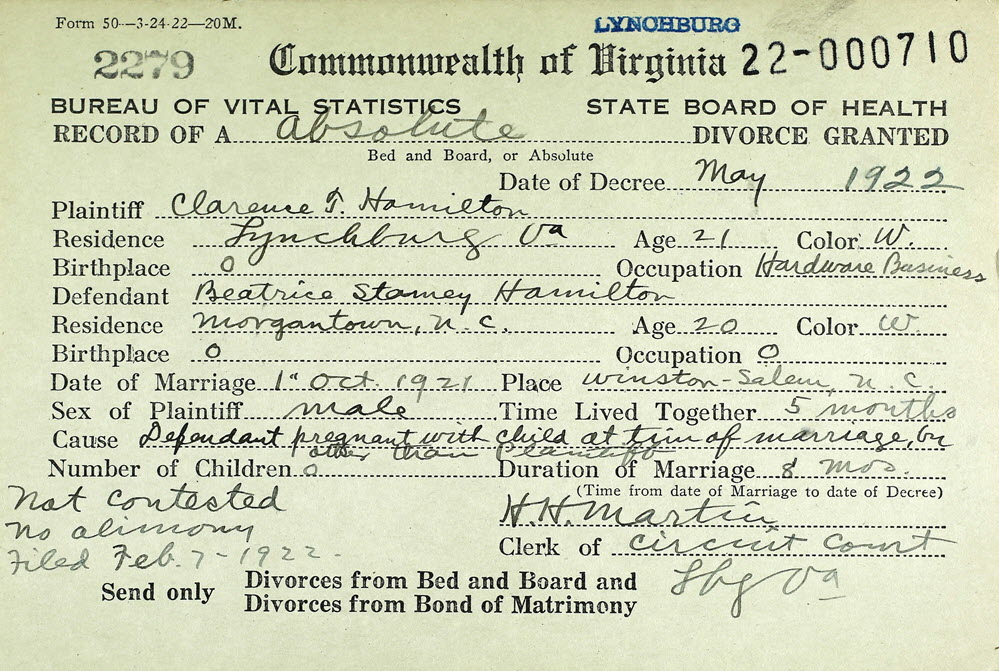 Form 50--3-24-22—20M.
LYNCHBURG
2279
Commonwealth of Virginia 22-000710
BUREAU OF VITAL STATISTICS STATE BOARD OF HEALTH
RECORD OF A Absolute DIVORCE GRANTED
Bed and Board, or Absolute
Date of Decree May 1922
Plaintiff Clarence T. Hamilton
Residence Lynchburg Va Age 21 Color W.
Birthplace 0 Occupation Hardware Business
Defendant Beatrice Stamey Hamilton
Residence Morgantown, N. C. Age 20 Color W
Birthplace 0 Occupation 0
Date of Marriage 1" Oct. 1921 Place Winston-Salem, N. C.
Sex of Plaintiff male Time Lived Together 5 months
Cause Defendant pregnant with child at tim of marriage, by
other than Plaintiff
Number of Children 0 Duration of Marriage 8 mos.
(Time from date of Marriage to date of Decree)
Not contested
H. H. Martin
No alimony
Clerk of Circuit Court
Filed Feb. 7-1922.
Lbg Va
Send only Divorces from Bed and Board and
Divorces from Bond of Matrimony